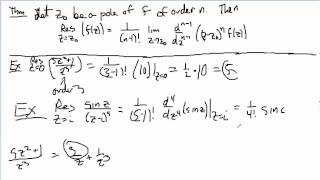 Thm: Let z₀ be a pole of f of order n. Then
Res_{z=z₀} (f(z)) = 1/(n-1)! lim_{z→z₀} d^{n-1}/dz^{n-1} (z-z₀)^n f(z)
Ex Res_{z=0} (5z²+1)/z³ = 1/(3-1)! (10)|_{z=0} = 1/2 · 10 = 5
order 3
Ex Res_{z=i} sin z/(z-i)⁵ = 1/(5-1)! d⁴/dz⁴ (sin z)|_{z=i} = 1/4! sin(
5z²+1/z³ = 5/z + 1/z³